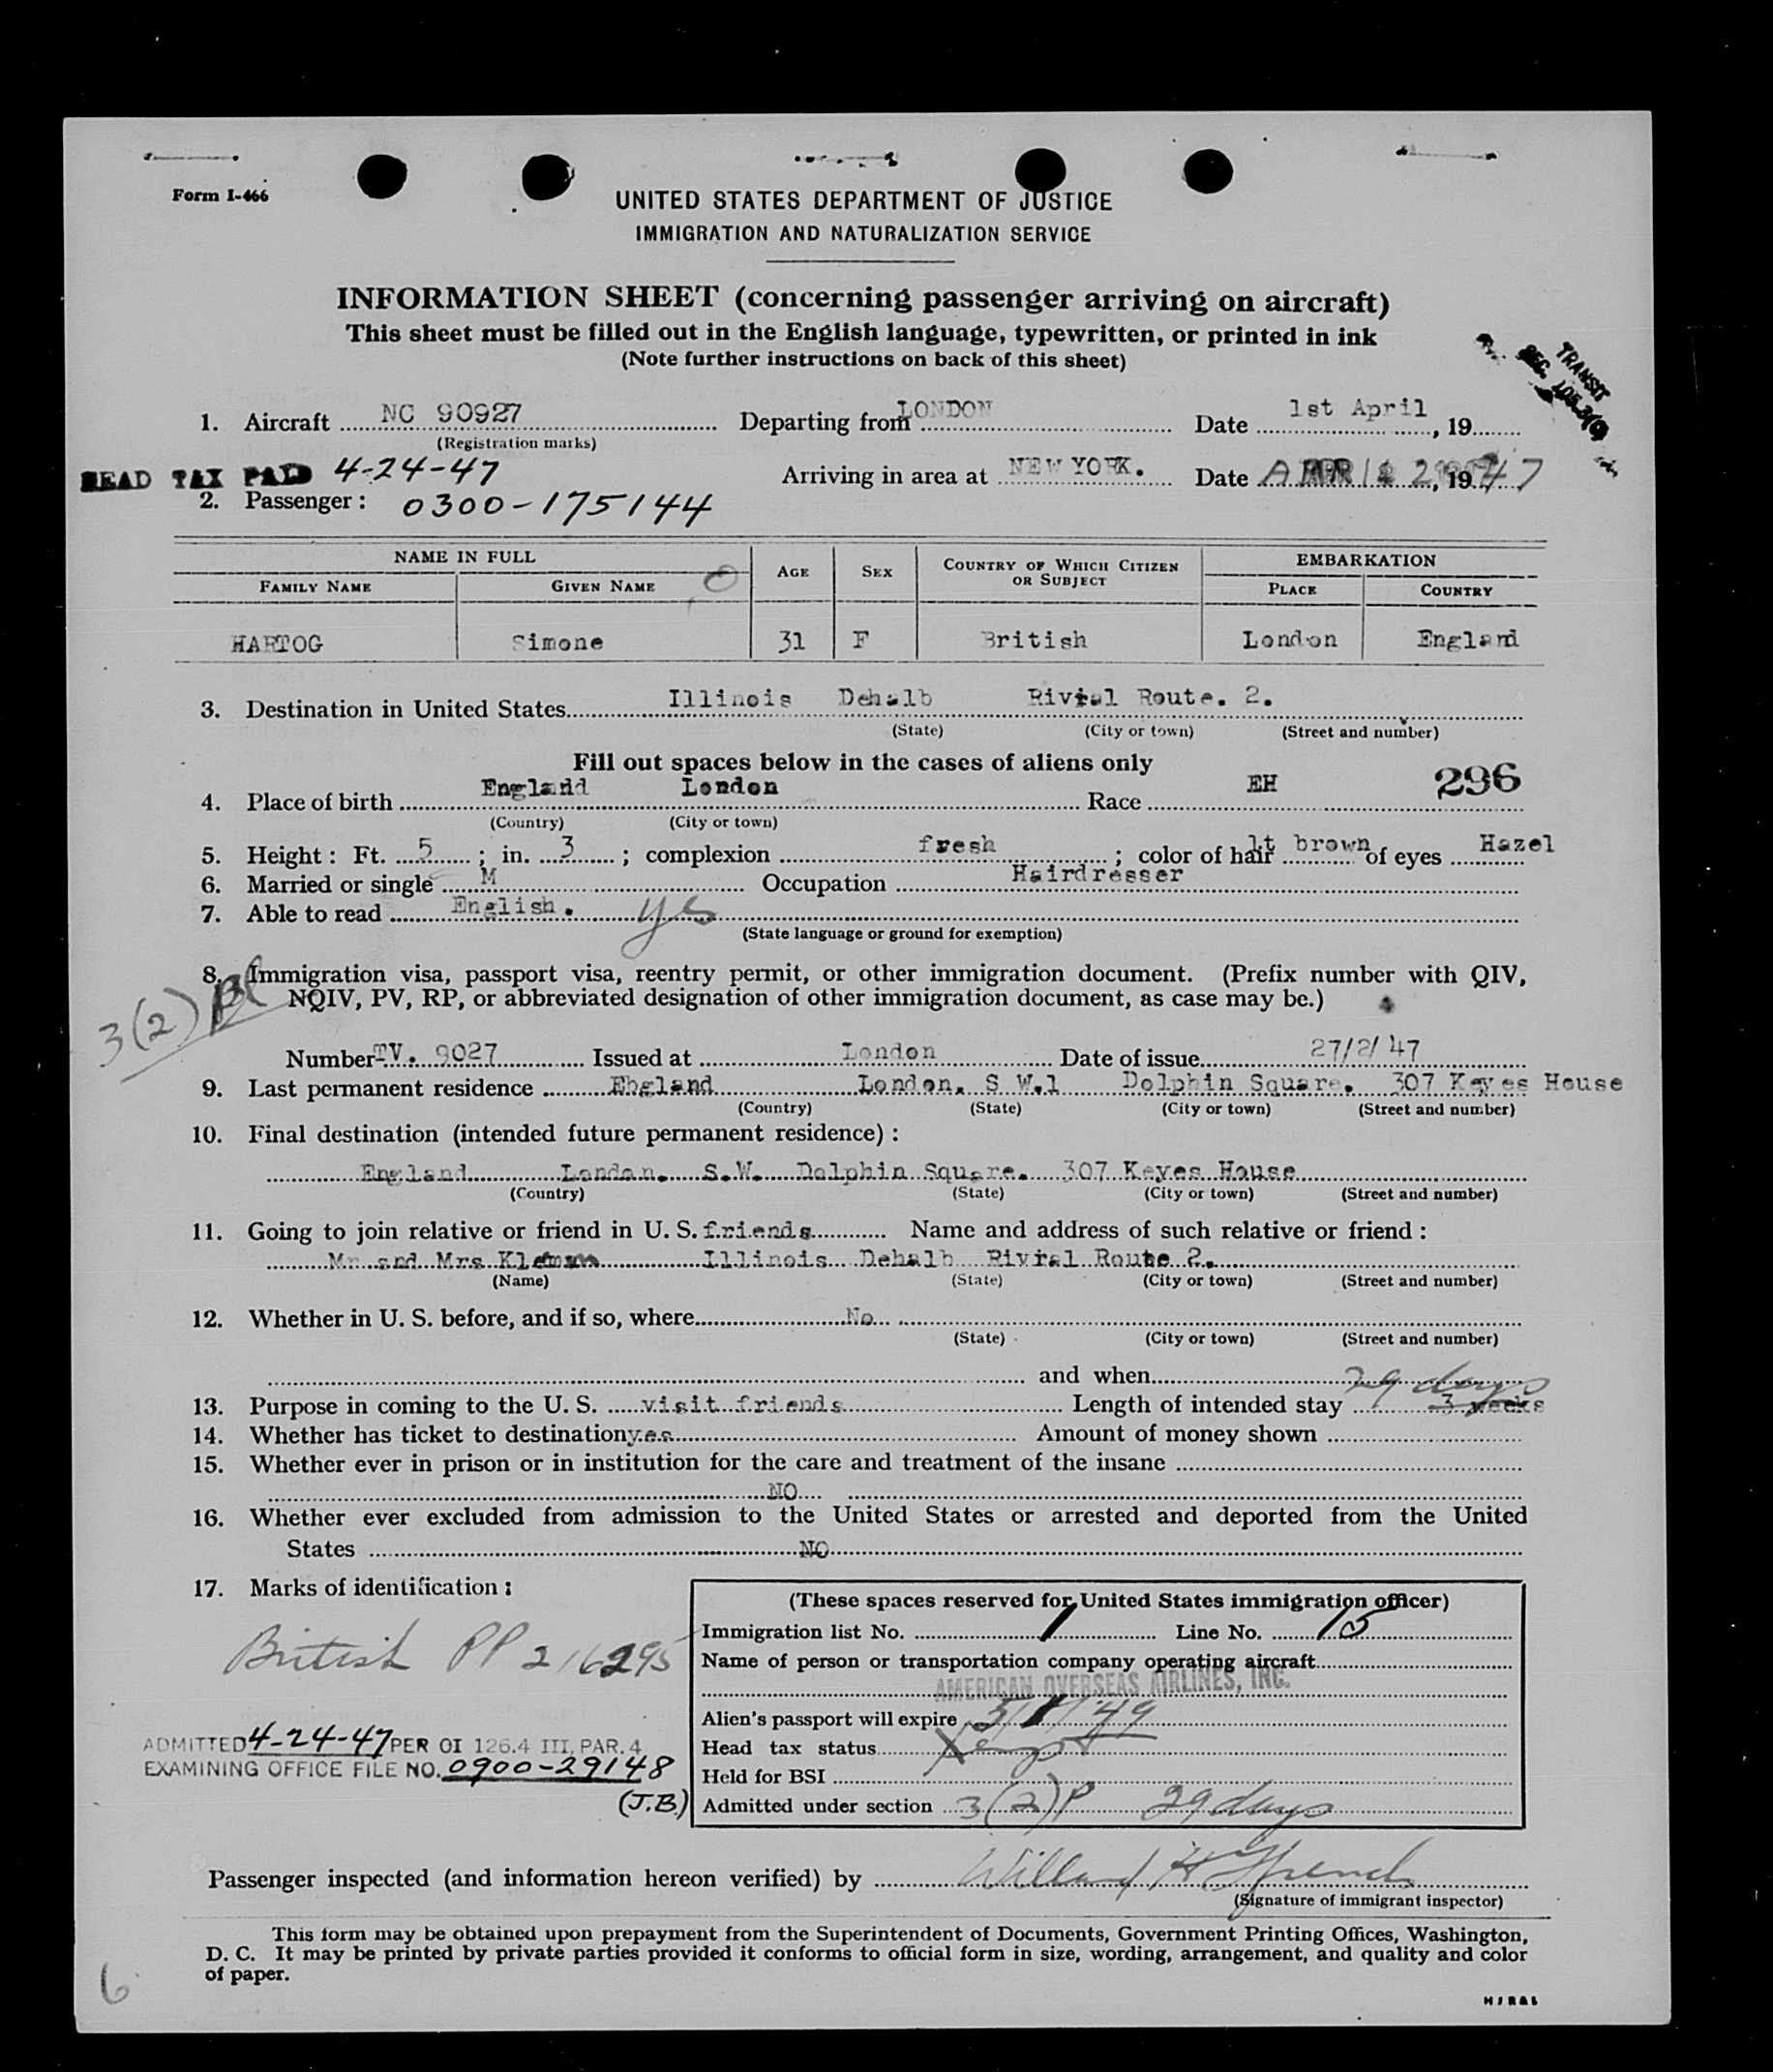 Form I-466
UNITED STATES DEPARTMENT OF JUSTICE
IMMIGRATION AND NATURALIZATION SERVICE
INFORMATION SHEET (concerning passenger arriving on aircraft)
This sheet must be filled out in the English language, typewritten, or printed in ink
(Note further instructions on back of this sheet)
TRANSIT
SEC.
1. Aircraft NC 90927 Departing from LONDON Date 1st April, 19
(Registration marks)
HEAD TAX PAID 4-24-47 Arriving in area at NEW YORK. Date 1947
2. Passenger: 0300-175144
NAME IN FULL AGE SEX COUNTRY OF WHICH CITIZEN OR SUBJECT EMBARKATION
FAMILY NAME GIVEN NAME PLACE COUNTRY
HARTOG Simone 31 F British London England
3. Destination in United States Illinois Dehalb Rivial Route. 2.
(State) (City or town) (Street and number)
Fill out spaces below in the cases of aliens only
296
4. Place of birth Englandd London Race EH
(Country) (City or town)
5. Height: Ft. 5; in. 3; complexion fresh; color of hair lt brown of eyes Hazel
6. Married or single M Occupation Hairdresser
7. Able to read English. yes
(State language or ground for exemption)
8. Immigration visa, passport visa, reentry permit, or other immigration document. (Prefix number with QIV,
NQIV, PV, RP, or abbreviated designation of other immigration document, as case may be.)
3(2)
Number TV. 9027 Issued at London Date of issue 27/2/47
9. Last permanent residence England London. S W.1 Dolphin Square. 307 Keyes House
(Country) (State) (City or town) (Street and number)
10. Final destination (intended future permanent residence):
England London. S.W. Dolphin Square. 307 Keyes House
(Country) (State) (City or town) (Street and number)
11. Going to join relative or friend in U. S. friends Name and address of such relative or friend:
Mr and Mrs Illinois Dehalb Rivial Route 2.
(Name) (State) (City or town) (Street and number)
12. Whether in U. S. before, and if so, where No
(State) (City or town) (Street and number)
and when
29 days
13. Purpose in coming to the U. S. visit friends Length of intended stay 3 weeks
14. Whether has ticket to destination yes Amount of money shown
15. Whether ever in prison or in institution for the care and treatment of the insane
NO
16. Whether ever excluded from admission to the United States or arrested and deported from the United
States NO
17. Marks of identification:
British PP 216295
ADMITTED 4-24-47 PER OI 126.4 III, PAR. 4
EXAMINING OFFICE FILE NO. 0900-29148
(J.B.)
(These spaces reserved for United States immigration officer)
Immigration list No. 1 Line No. 15
Name of person or transportation company operating aircraft
AMERICAN OVERSEAS AIRLINES, INC.
Alien's passport will expire 3/1/49
Head tax status
Held for BSI
Admitted under section 3(2)P 29 days
Passenger inspected (and information hereon verified) by Willard H
(Signature of immigrant inspector)
This form may be obtained upon prepayment from the Superintendent of Documents, Government Printing Offices, Washington,
D. C. It may be printed by private parties provided it conforms to official form in size, wording, arrangement, and quality and color
of paper.
6